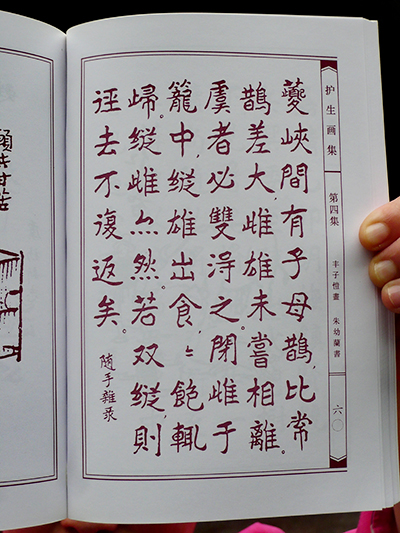 护生画集
第四集
丰子愷畫 朱幼蘭書
六〇
夔峽間有子母鵲，比常
鵲差大，雌雄未嘗相離。
虞者必雙淂之。閉雌于
籠中，縱雄出食，〻飽輒
歸。縱雌亦然。若双縱，則
徑去不復返矣。
隨手雜录